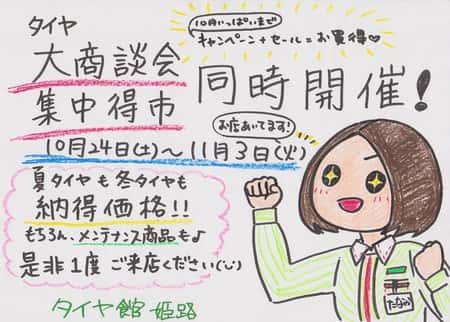 タイヤ
大商談会
集中得市
同時開催!
10月いっぱいまで
キャンペーン+セール=お買得♡
10月24日(土)~11月3日(火)
お店あいてます!
夏タイヤも冬タイヤも
納得価格!!
もちろん、メンテナンス商品も♪
是非1度ご来店ください(ᴗ)
タイヤ館 姫路